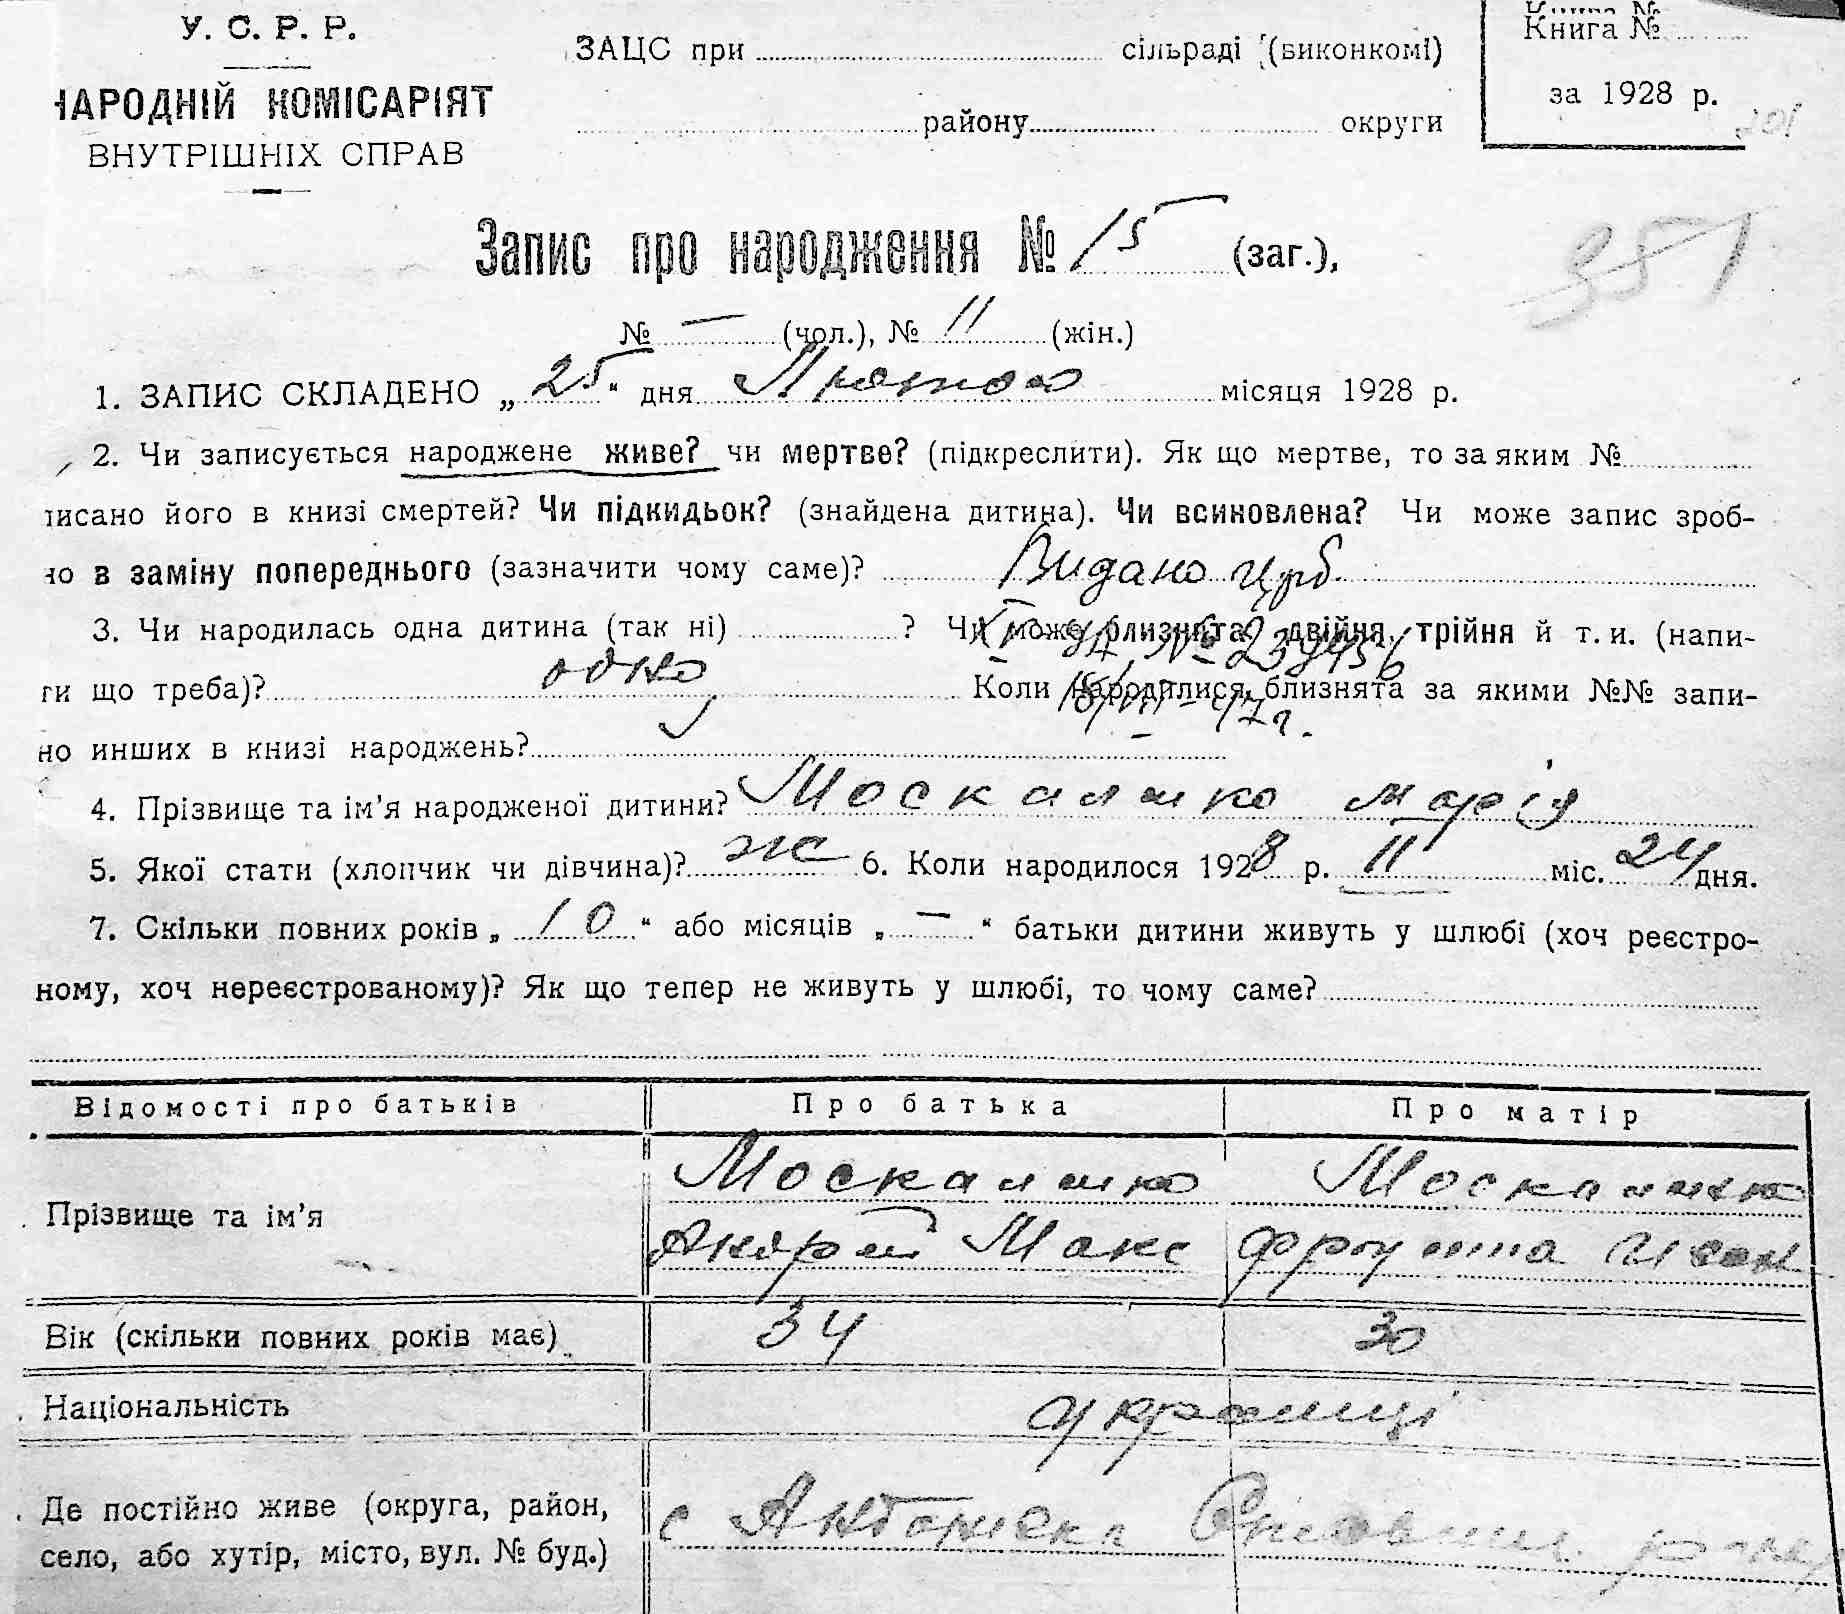 У. С. Р. Р.
НАРОДНІЙ КОМІСАРІЯТ
ВНУТРІШНІХ СПРАВ
ЗАЦС при сільраді (виконкомі)
району округи
Книга №
Книга №
за 1928 р.
201
351
Запис про народження № 15 (заг.),
№ — (чол.), № 11 (жін.)
1. ЗАПИС СКЛАДЕНО „ 25 “ дня Лютого місяця 1928 р.
2. Чи записується народжене живе? чи мертве? (підкреслити). Як що мертве, то за яким №
писано його в книзі смертей? Чи підкидьок? (знайдена дитина). Чи всиновлена? Чи може запис зроб-
но в заміну попереднього (зазначити чому саме)? Видано
3. Чи народилась одна дитина (так ні) ? Чи може близнята? двійня, трійня й т. и. (напи-
ти що треба)? одно Коли народилися близнята за якими №№ запи-
но инших в книзі народжень?
4. Прізвище та ім’я народженої дитини? Москаленко марія
5. Якої стати (хлопчик чи дівчина)? ж 6. Коли народилося 1928 р. 11 міс. 24 дня.
7. Скільки повних років „ 10 “ або місяців „ — “ батьки дитини живуть у шлюбі (хоч реєстро-
ному, хоч нереєстрованому)? Як що тепер не живуть у шлюбі, то чому саме?
Відомості про батьків Про батька Про матір
Прізвище та ім’я Москаленко Москаленко
Андрій Макс
Вік (скільки повних років має) 34 30
Національність українці
Де постійно живе (округа, район,
село, або хутір, місто, вул. № буд.) с